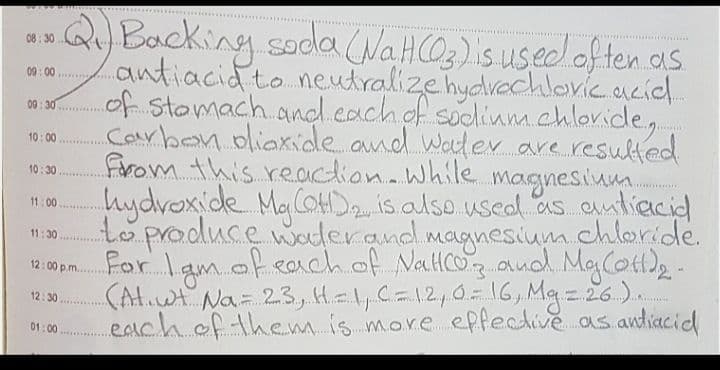 08:30 Q.) Backing soda (NaHCO3) is used often as
09:00 antiacid to neutralize hydrochloric acid
09:30 of stomach and each of sodium chloride,
10:00 Carbon dioxide and water are resulted
10:30 From this reaction. While magnesium
11:00 hydroxide Mg(OH)2 is also used as antiacid
11:30 to produce water and magnesium chloride.
12:00 p.m. For 1gm of each of NaHCO3 and Mg(OH)2.
12:30 (At.wt Na=23, H=1, C=12, O=16, Mg=26).
01:00 each of them is more effective as antiacid